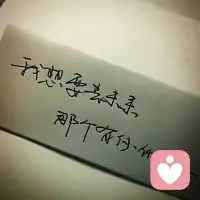 我想要去未来
那个有你